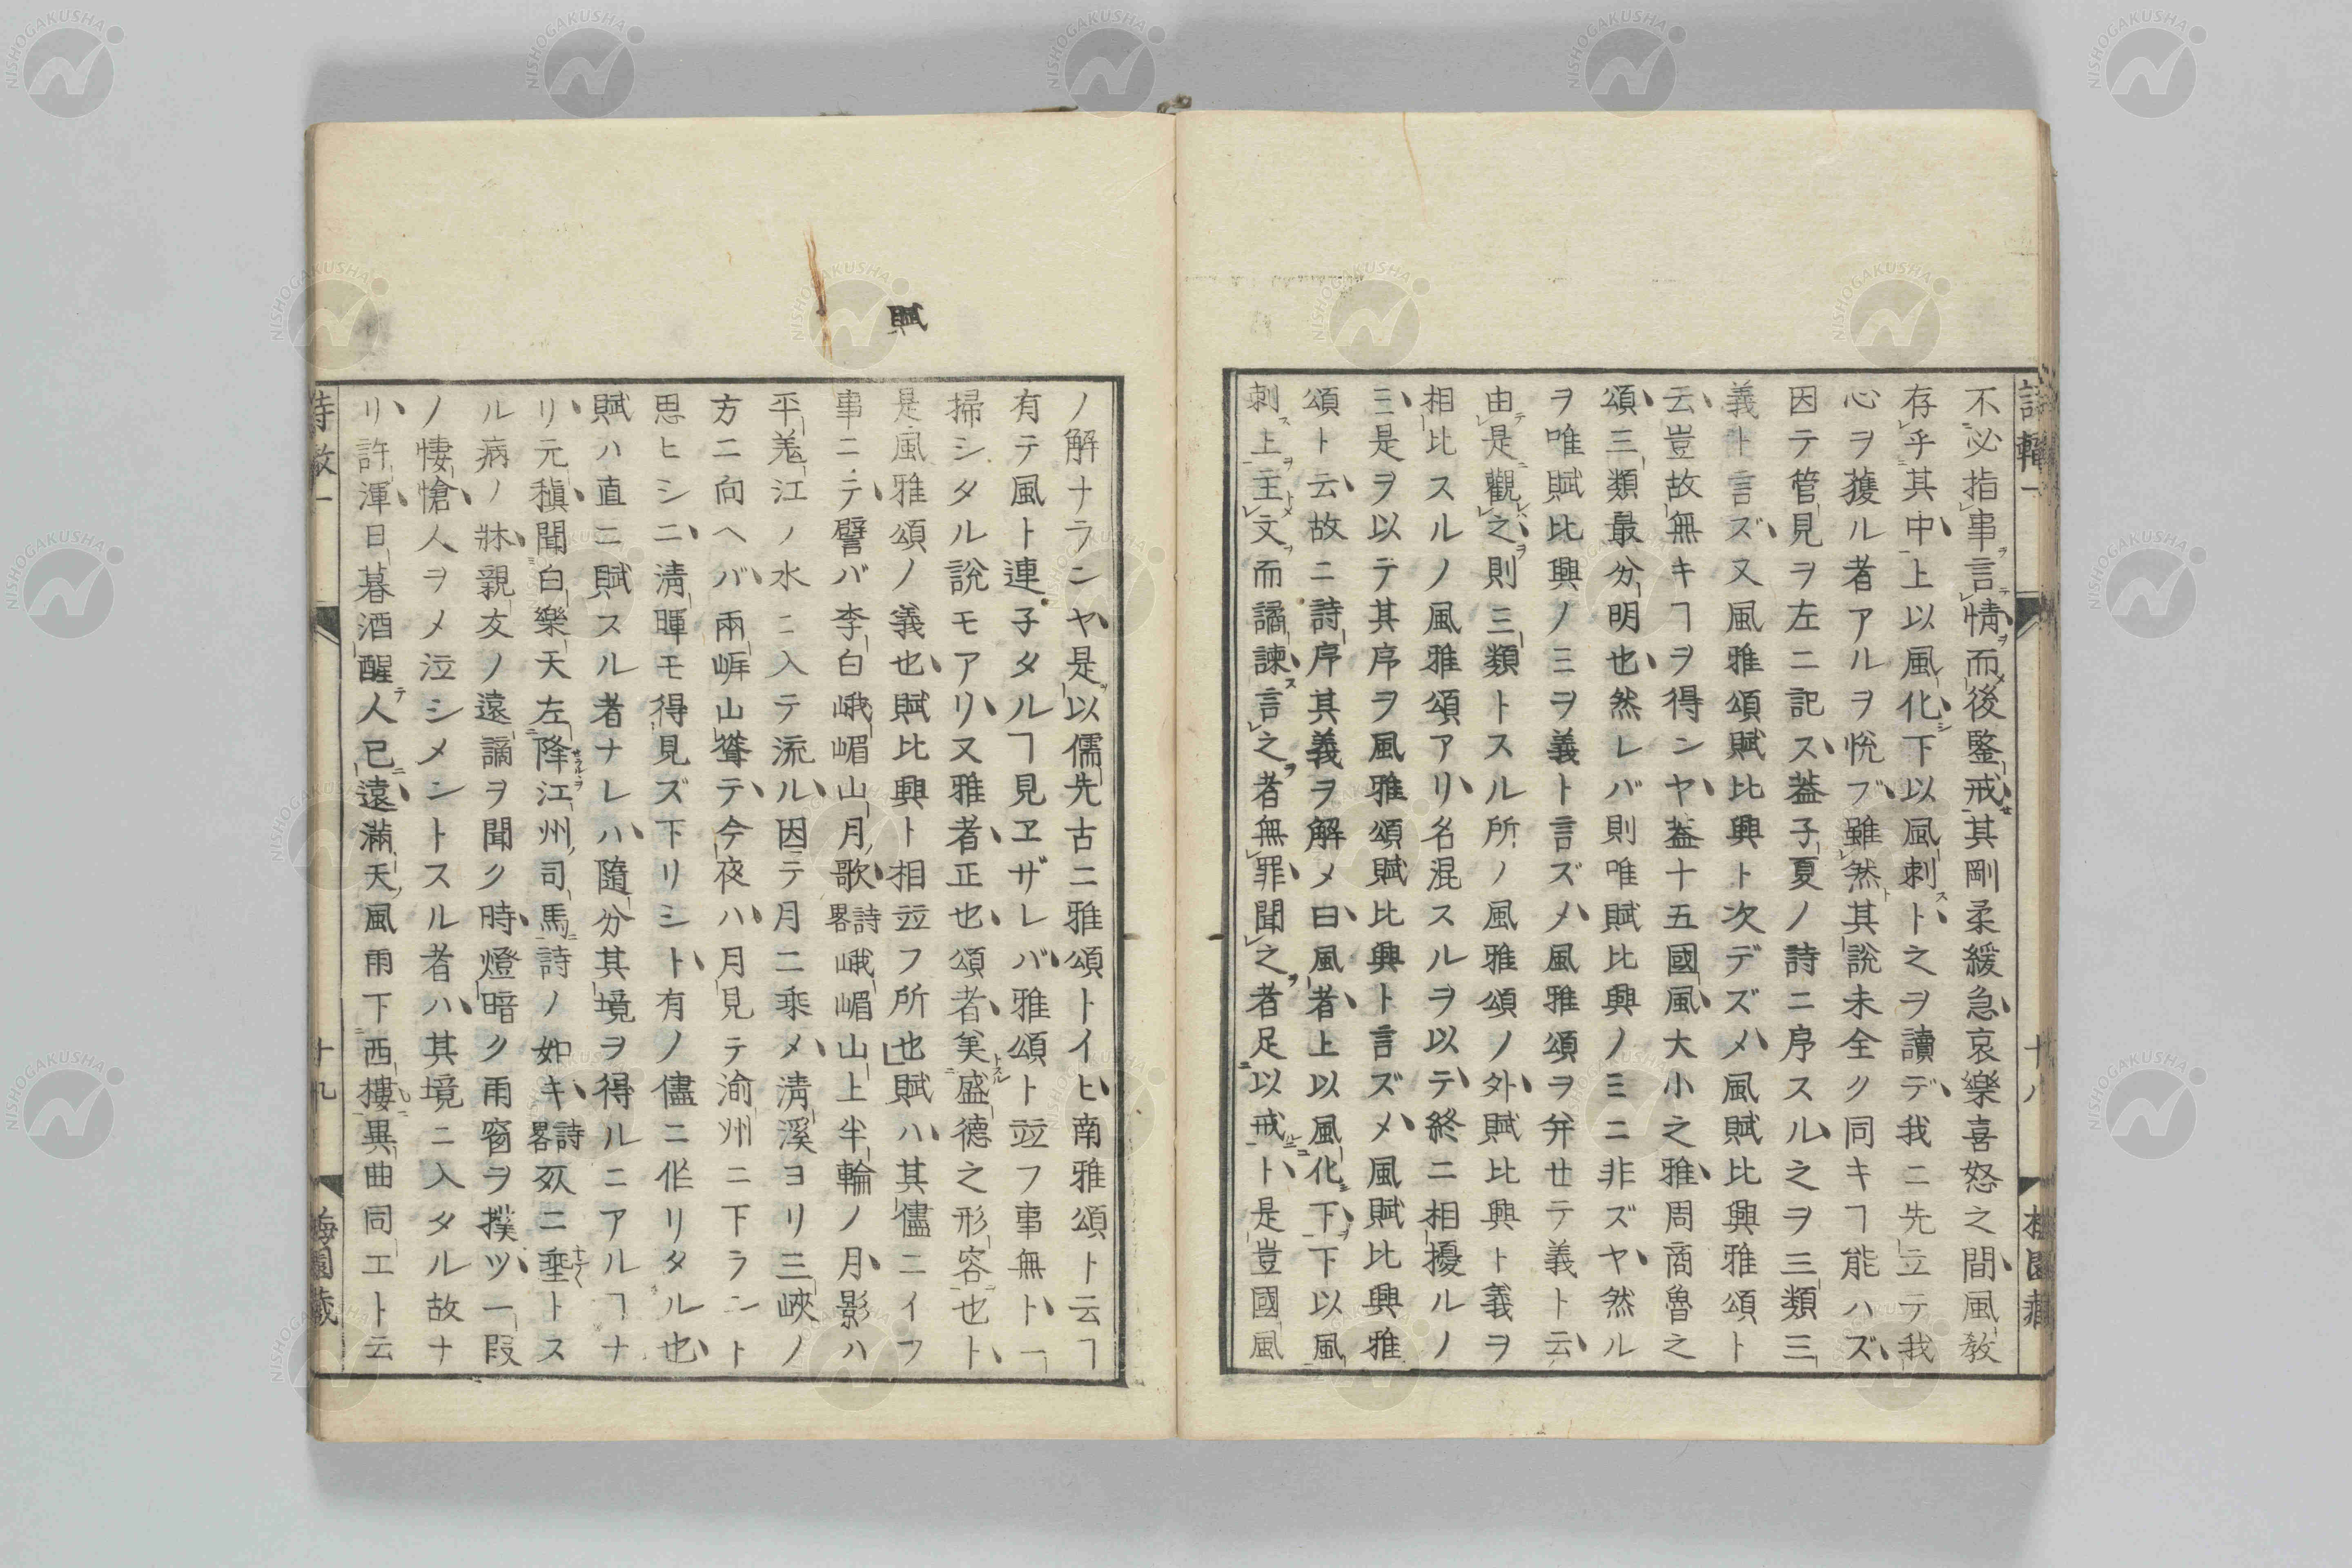 不必指事言情而後鑒戒其剛柔緩急哀樂喜怒之間風教
存乎其中上以風化下以風刺ト之ヲ讀デ我ニ先立テ我
心ヲ獲ル者アルヲ悦ブ雖然其説未全ク同キヿ能ハズ
因テ管見ヲ左ニ記ス葢子夏ノ詩ニ序スル之ヲ三類三
義ト言ズ又風雅頌賦比興ト次デズメ風賦比興雅頌ト
云豈故無キヿヲ得ンヤ葢十五國風大小之雅周商魯之
頌三類最分明也然レバ則唯賦比興ノミニ非ズヤ然ル
ヲ唯賦比興ノミヲ義ト言ズメ風雅頌ヲ弁セテ義ト云
由是觀之則三類トスル所ノ風雅頌ノ外賦比興ト義ヲ
相比スルノ風雅頌アリ名混スルヲ以テ終ニ相擾ルノ
ミ是ヲ以テ其序ヲ風雅頌賦比興ト言ズメ風賦比興雅
頌ト云故ニ詩序其義ヲ解メ曰風者上以風化下下以風
刺上主文而譎諫言之者無罪聞之者足以戒ト是豈國風
賦
ノ解ナランヤ是以儒先古ニ雅頌トイヒ南雅頌ト云ヿ
有テ風ト連子タルヿ見ヱザレバ雅頌ト竝フ事無ト一
掃シタル説モアリ又雅者正也頌者美盛德之形容也ト
是風雅頌ノ義也賦比興ト相竝フ所也賦ハ其儘ニイフ
事ニテ譬バ李白峨嵋山月歌詩畧峨嵋山上半輪ノ月影ハ
平羗江ノ水ニ入テ流ル因テ月ニ乘メ清溪ヨリ三峽ノ
方ニ向ヘバ兩崖山聳テ今夜ハ月見テ渝州ニ下ラント
思ヒシニ清暉モ得見ズ下リシト有ノ儘ニ作リタル也
賦ハ直ニ賦スル者ナレハ隨分其境ヲ得ルニアルヿナ
リ元稹聞白樂天左降江州司馬詩ノ如キ詩畧死ニ埀トス
ル病ノ牀親友ノ遠謫ヲ聞ク時燈暗ク雨窗ヲ撲ツ一段
ノ悽愴人ヲメ泣シメントスル者ハ其境ニ入タル故ナ
リ許渾日暮酒醒人已遠滿天風雨下西樓異曲同工ト云
十九
梅園藏